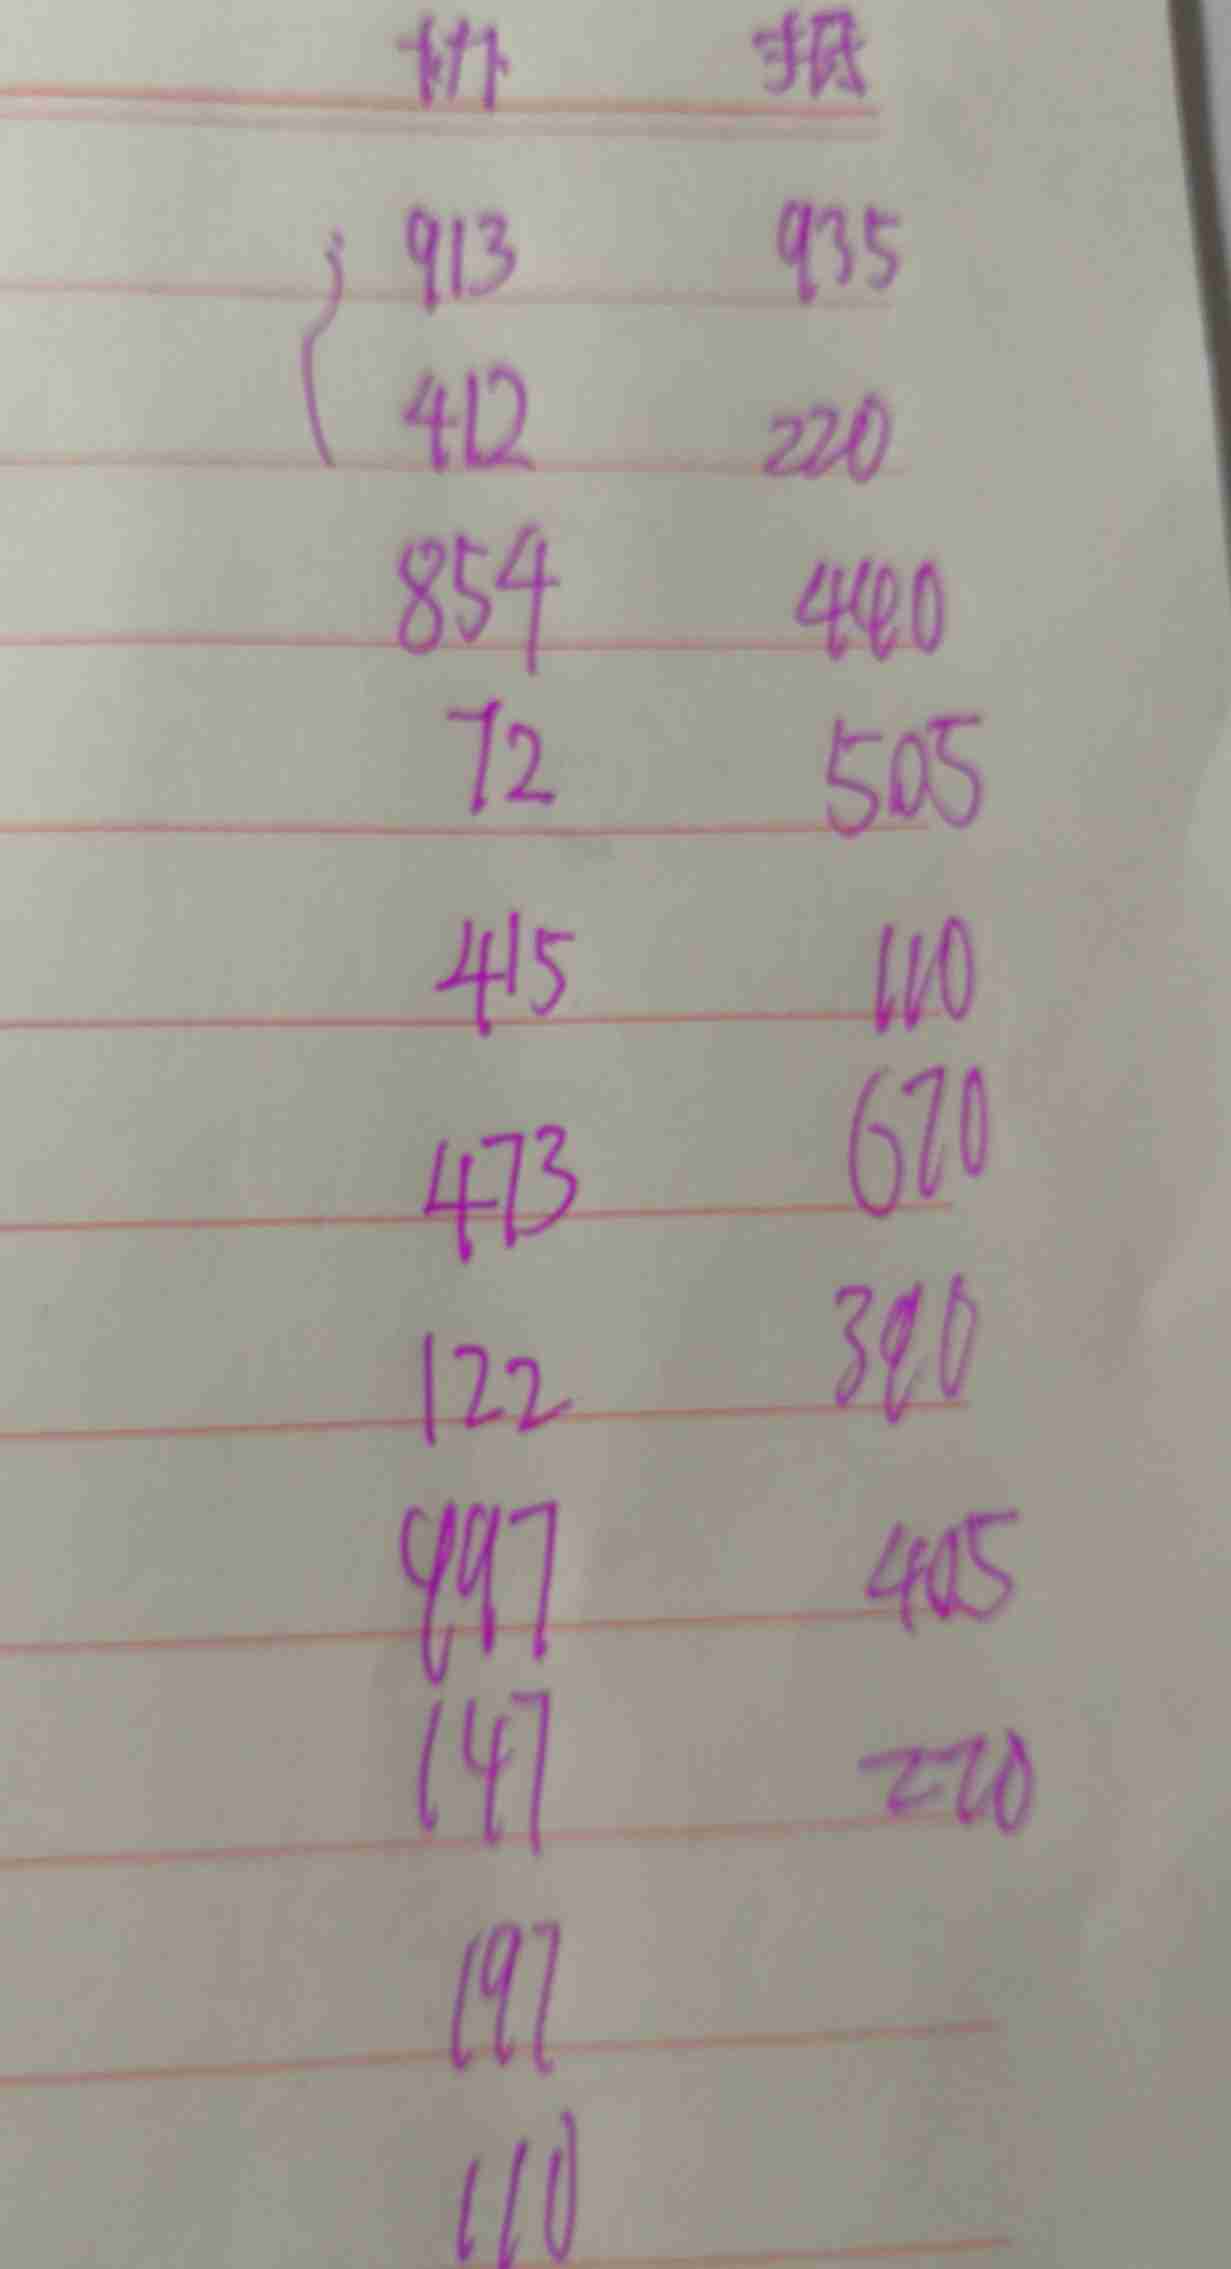 913 935
412 220
854 440
72 505
415 110
473 670
122 390
897 405
147 220
197
110